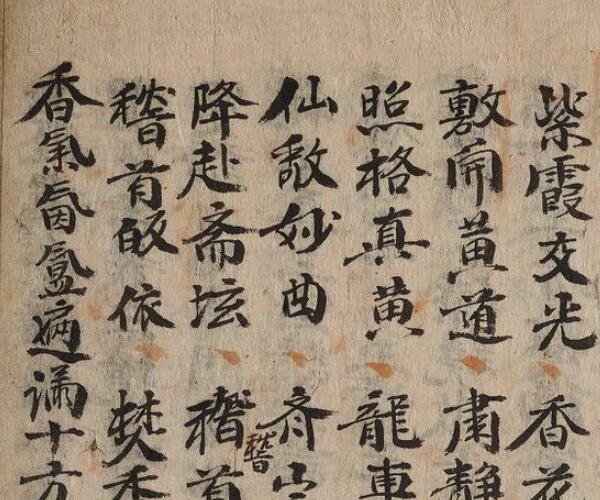 紫霞交光香花
敷開黄道肅靜
照格真黄龍車
仙敷妙曲齐
降赴斋坛稽首
稽
稽首皈依焚香
香氣氤氲遍满十方